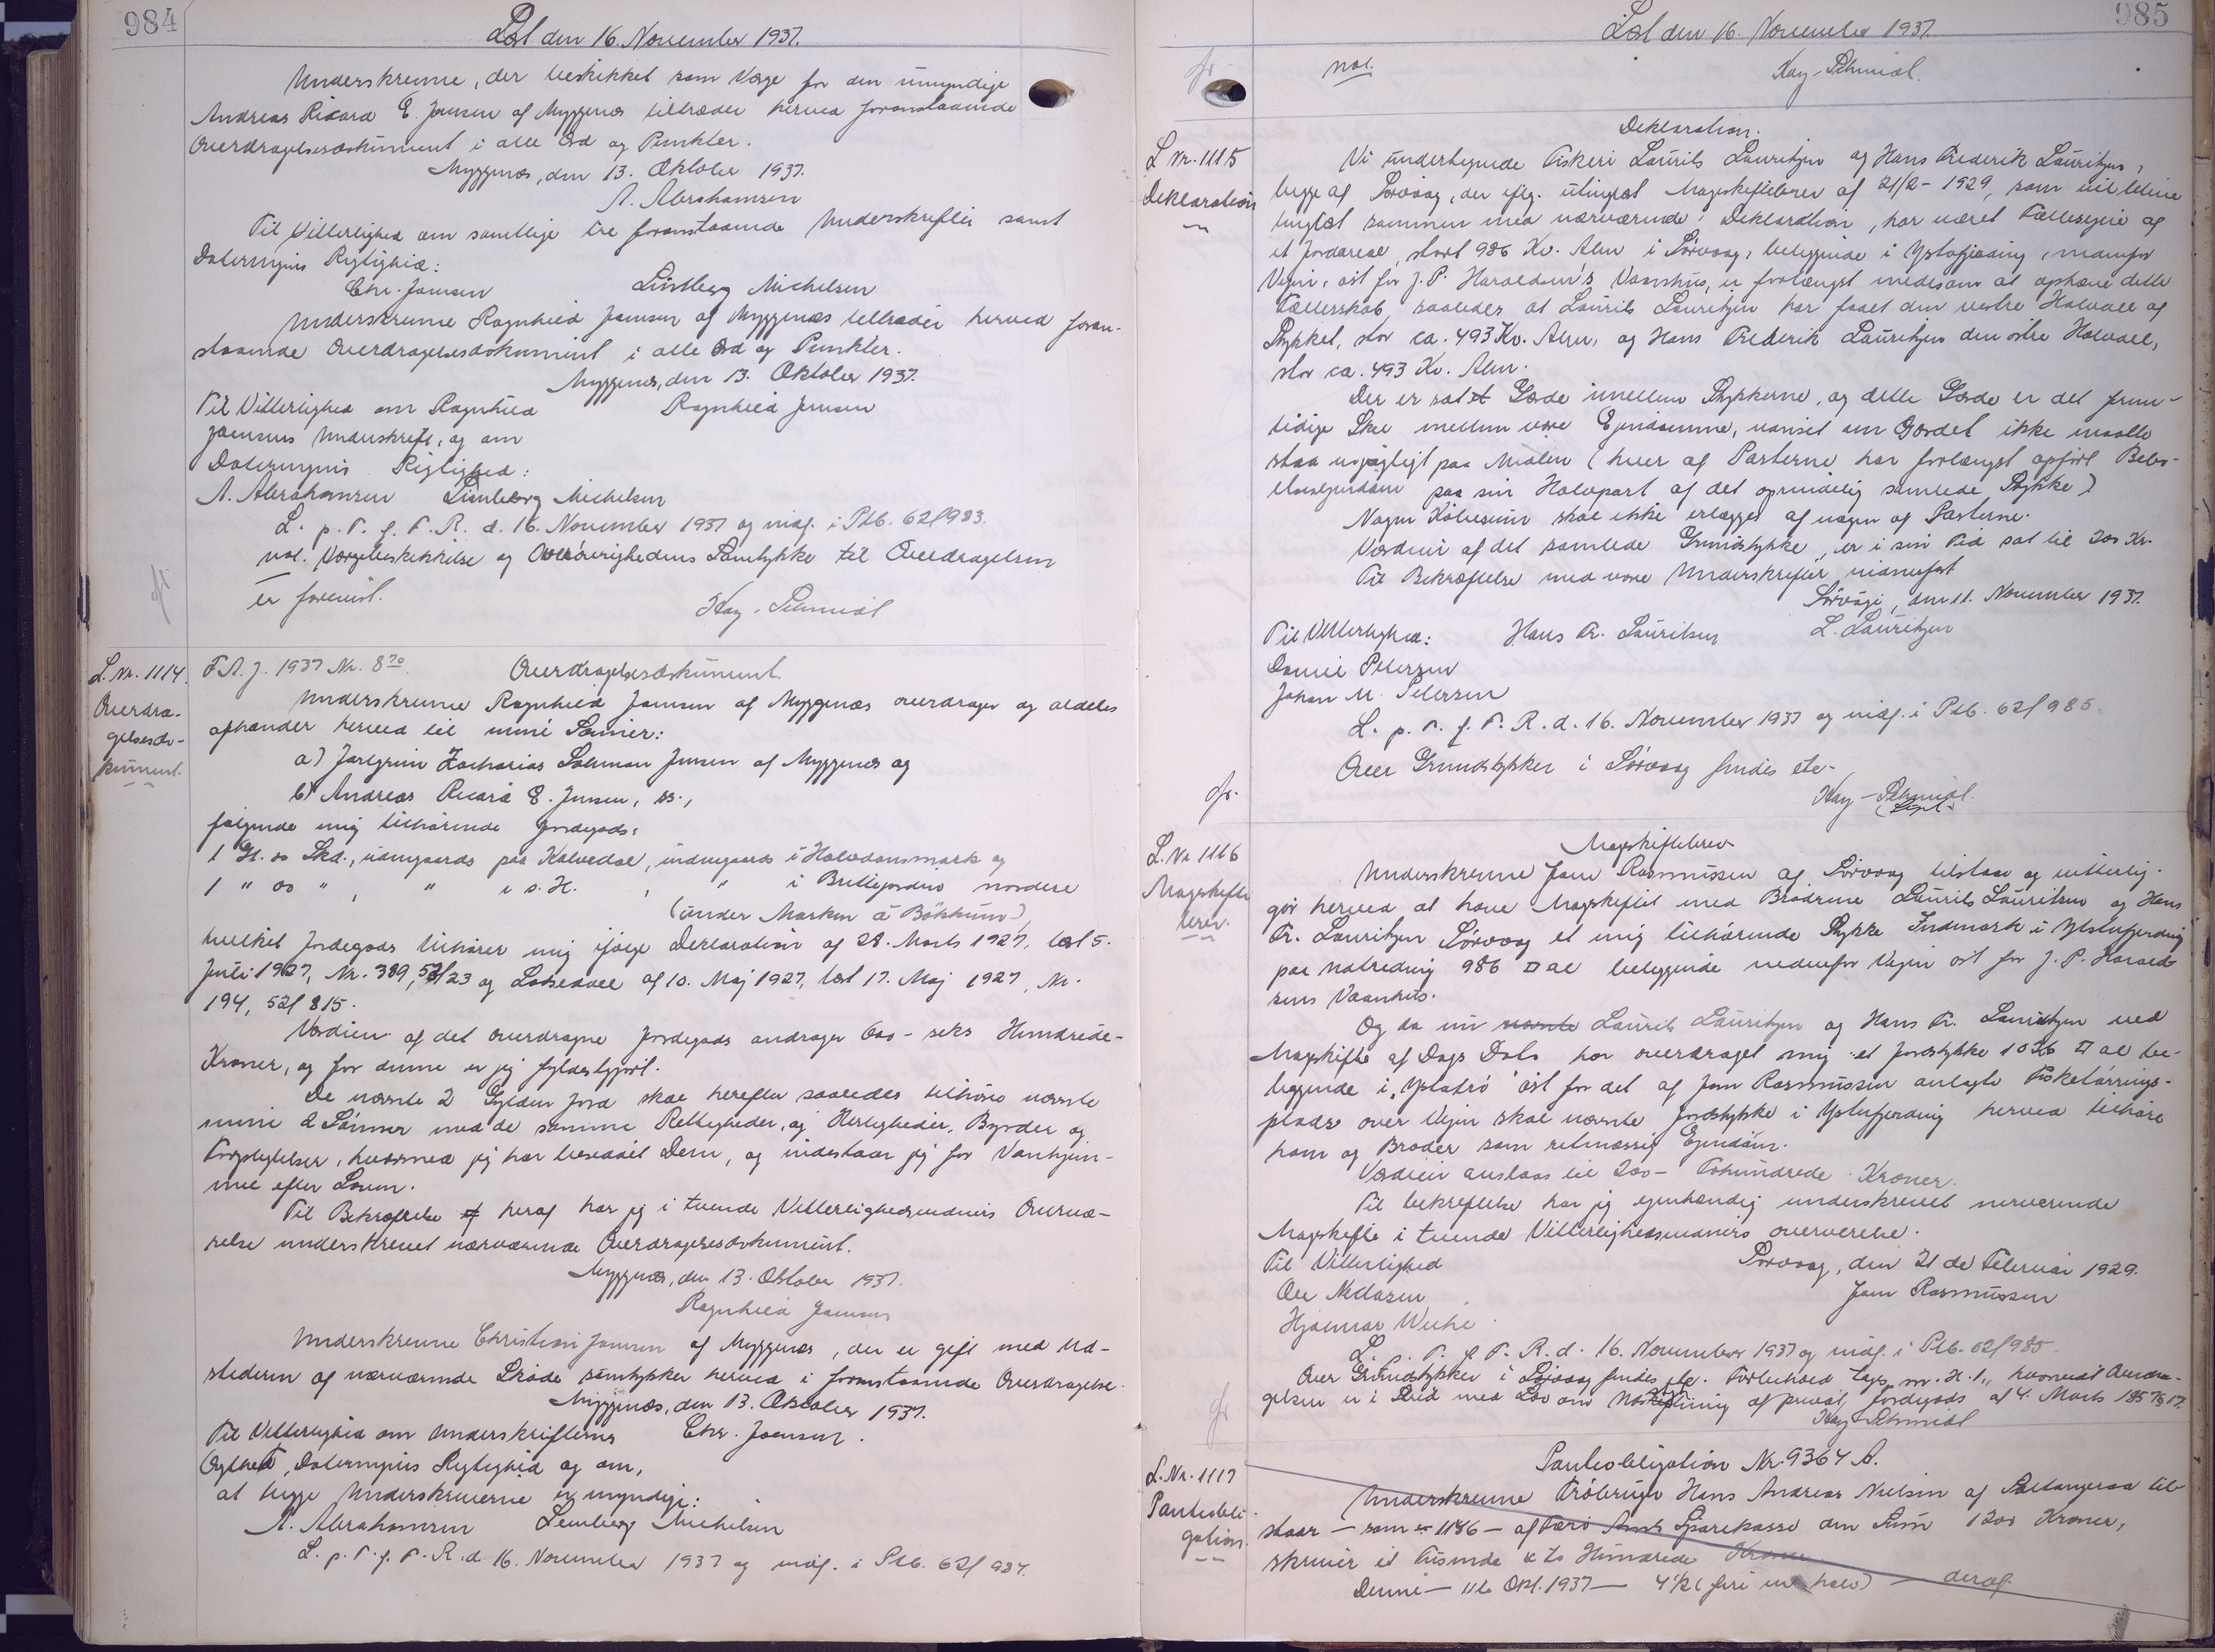 984
Læst den 16. November 1937.
Underskrevne, der beskikket som Værge for den umyndige
Andreas Ricard E. Joensen af Myggenæs tiltræder herved foranstaaende
Overdragelsesdokument i alle Ord og Punkter.
Myggenæs, den 13. Oktober 1937.
A. Abrahamsen
Til Vitterlighed om samtlige tre foranstaaende Underskrifter samt
Dateringens Rigtighed:
Chr. Joensen Lindberg Michelsen
Underskrevne Ragnhild Joensen af Myggenæs tiltræder herved foran-
staaende Overdragelsesdokument i alle Ord og Punkter.
Myggenæs, den 13. Oktober 1937.
Til Vitterlighed om Ragnhild Ragnhild Joensen
Joensens Underskrift, og om
Dateringens Rigtighed:
A. Abrahamsen Lindberg Michelsen
L. p. T. f. F. R. d. 16. November 1937 og indf. i Ptb. 62/983.
not. Værgebeskikkelse og Overøvrighedens Samtykke til Overdragelsen
er forevist.
Kay-Schmidt
L. Nr. 1114.
Overdra-
gelsesdo-
kument.
F.A.J. 1937 Nr. 870. Overdragelsesdokument.
Underskrevne Ragnhild Joensen af Myggenæs overdrager og aldeles
afhænder herved til mine Sønner:
a) Jaspur Zacharias Salomon Joensen af Myggenæs og
b) Andreas Ricard E. Joensen, ss.,
følgende mig tilhørende Jordegods:
1 Gl. 00 Skd., udengaards paa Kalvedal, indengaards i Halvdansmark og
1 " 00 " , " i s. H. , " i Brettegordini nordere
(under Marken á Bökkum),
hvilket Jordegods tilhører mig ifølge Deklaration af 28. Marts 1927, læst 5.
Juli 1927, Nr. 389, 53/23 og Lodseddel af 10. Maj 1927, læst 17. Maj 1927, Nr.
194, 52/815.
Værdien af det overdragne Jordegods andrager 600 - seks Hundrede-
Kroner, og for denne er jeg fyldestgjort.
De nævnte 2 Gylden Jord skal herefter saaledes tilhøre nævnte
mine 2 Sønner med de samme Rettigheder, og Herligheder, Byrder og
Forpligtelser, hvormed jeg har besiddet Dem, og indestaar jeg for Vanhjem-
mel efter Loven.
Til Bekræftelse heraf har jeg i tvende Vitterlighedsvidners Overvæ-
relse underskrevet nærværende Overdragelsesdokument.
Myggenæs, den 13. Oktober 1937.
Ragnhild Joensen
Underskrevne Christian Joensen af Myggenæs, der er gift med Ud-
stederen af nærværende Skøde samtykker herved i foranstaaende Overdragelse.
Myggenæs, den 13. Oktober 1937.
Til Vitterlighed om Underskrifternes Chr. Joensen.
Ægthed, Dateringens Rigtighed og om,
at begge Underskriverne er myndige:
A. Abrahamsen Lindberg Michelsen
L. p. T. f. F. R. d. 16. November 1937 og indf. i Ptb. 62/984.
985
Læst den 16. November 1937.
not. Kay-Schmidt.
L. Nr. 1115
Deklaration
Deklaration.
Vi undertegnede Fiskeri Laurits Lauritzen og Hans Frederik Lauritzen,
begge af Sörvaag, der iflg. utinglæst Mageskiftebrev af 21/2 - 1929, som vil blive
tinglæst sammen med nærværende Deklaration, har været Fællesejere af
et Jordareal, stort 986 Kv. Alen i Sörvaag, beliggende i Ystafjording, nedenfor
Vejen, øst for J. P. Haraldsen's Vaanhus, er forlængst medesom at ophæve dette
Fællesskab, saaledes at Laurits Lauritzen har faaet den vestre Halvdel af
Stykket, stor ca. 493 Kv. Alen, og Hans Frederik Lauritzen den østre Halvdel,
stor ca. 493 Kv. Alen.
Der er sat et Gærde imellem Stykkerne, og dette Gærde er det frem-
tidige Skel mellem vore Ejendomme, uanset om Gærdet ikke maatte
staa nøjagtigt paa Midten (hver af Parterne har forlængst opført Bebo-
elsesejendom paa sin Halvpart af det oprindelig samlede Stykke).
Nogen Købesum skal ikke erlægges af nogen af Parterne.
Værdien af det samlede Grundstykke, er i sin Tid sat til 200 Kr.
Til Bekræftelse med vore Underskrifter vidnefast
Sörvági, den 11. November 1937.
Til Vitterlighed: Hans Fr. Lauritzen L. Lauritzen
Daniel Petersen
Johan M. Petersen
L. p. T. f. F. R. d. 16. November 1937 og indf. i Ptb. 62/985.
Over Grundstykker i Sörvaag findes etc-
Kay-Schmidt.
L. Nr. 1116
Mageskifte
brev.
Mageskiftebrev
Underskrevne Joen Rasmussen af Sörvaag tilstaar og vitterlig-
gør herved at have Mageskiftet med Brødrene Laurits Lauritsen og Hans
Fr. Lauritzen Sörvaag et mig tilhørende Stykke Indmark i Ystafjording
paa Matredning 986 □ al beliggende nedenfor Vejen øst for J. P. Harald-
sens Vaanhus.
Og da nu nævnte Laurits Lauritzen og Hans Fr. Lauritzen ved
Mageskifte af Dags Dato har overdraget mig et Jordstykke 1026 □ al be-
liggende i "Ystatrö" øst for det af Joen Rasmussen anlagte Fisketørrings-
plads over Vejen skal nævnte Jordstykke i Ystafjording herved tilhøre
ham og Broder som retmæssig Ejendom.
Værdien anslaas til 200 - Tohundrede - Kroner.
Til bekreftelse har jeg egenhændig underskrevet nerværende
Mageskifte i tvende Vitterlighedsvidners overværelse.
Til Vitterlighed Sörvaag, den 21 de Februar 1929.
Ole Niclasen Joen Rasmussen
Hjalmar Weihe
L. p. T. f. F. R. d. 16. November 1937 og indf. i Ptb. 62/985.
Over Grundstykker i Sörvaag findes etc. Forbehold tages m. H. t., hvorvidt Overdra-
gelsen er i Strid med Lov om Udskiftning af privat Jordegods af 4. Marts 1857 § 17.
Kay-Schmidt
L. Nr. 1117
Panteobli-
gation.
Panteobligation Nr. 9364 A.
Underskrevne Tröbrugs Hans Andreas Nielsen af Saltangeraa til-
staar - som 1186 - af Færø Amts Sparekasse den Sum 1200 Kroner,
skriver et Tusinde & to Hundrede Kroner
Denne - 11te Okt. 1937 - 4 1/2 (fire en halv) - deraf